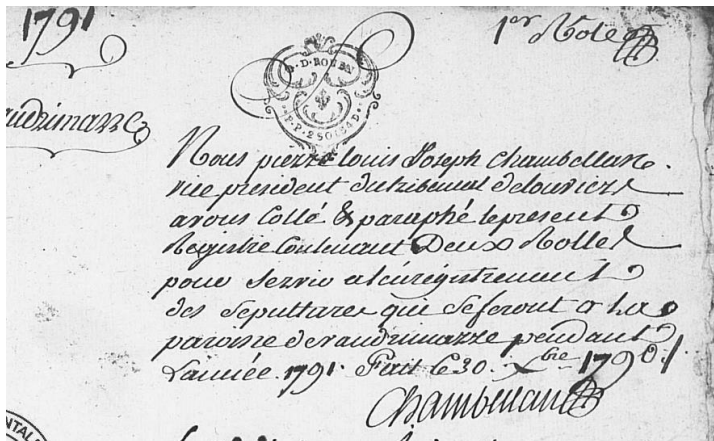 1791
1er Rolle
G. D. ROUEN
P.P. 2 SOLS 4 D.
audrimarre
Nous pierre Louis Joseph Chambellan
vice president du tribunal de louviers
avons Collé & paraphé le present
Registre Contenant Deux Rolles
pour servir a l'enregistrement
des sepultures qui se feront en la
paroisse de vaudrimarre pendant
L'année 1791. Fait le 30. Xbre 1790./.
Chambellan
NTAL